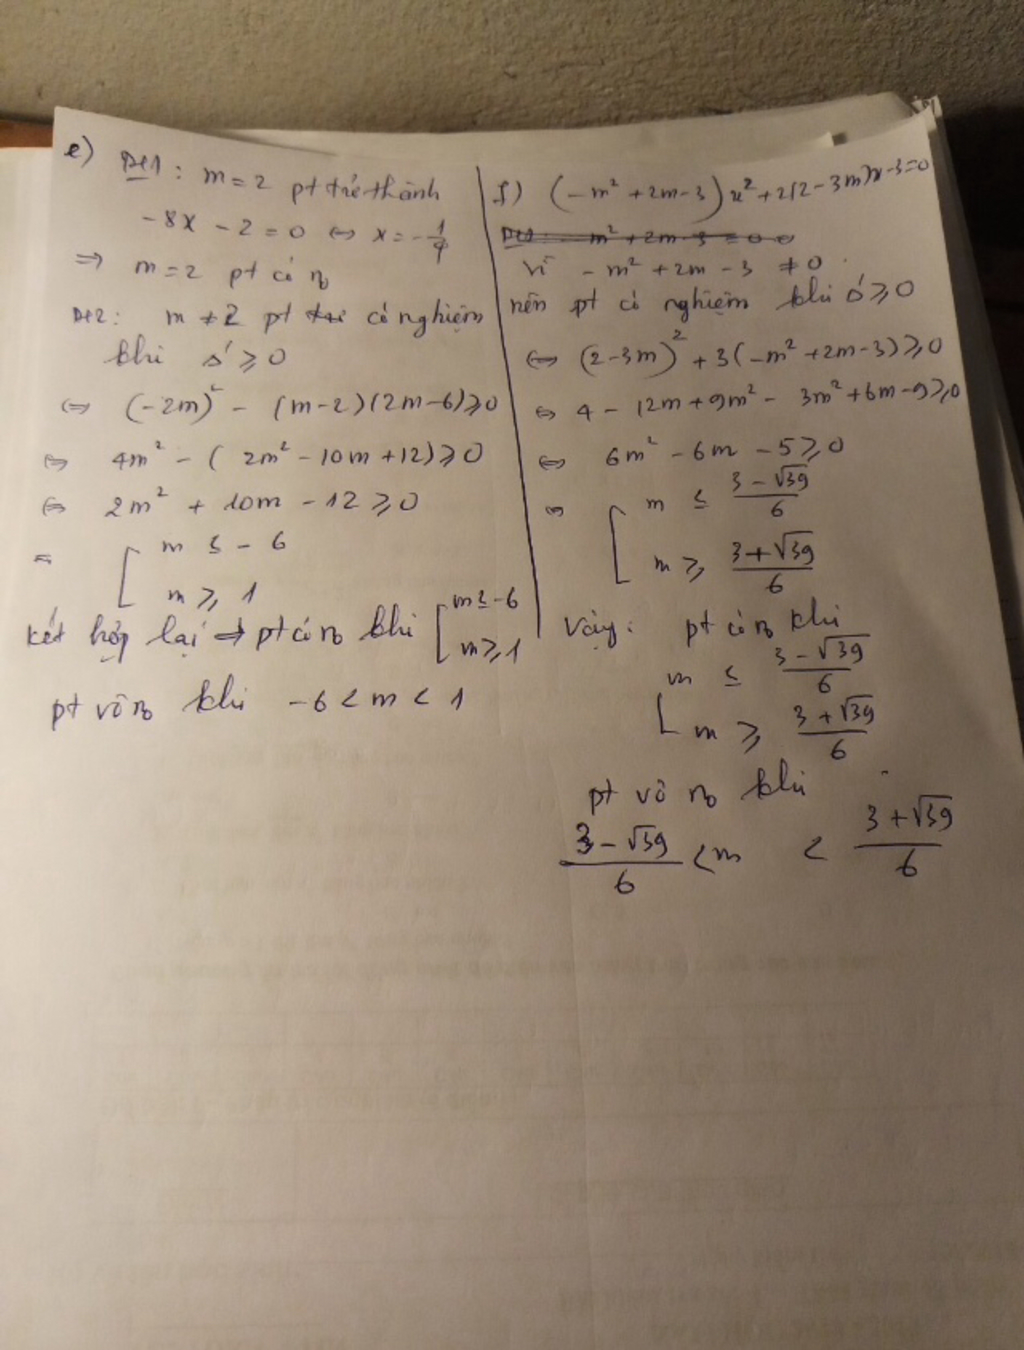 e) DK1: m = 2 pt trở thành
-8x - 2 = 0 ⇔ x = -1/4
⇒ m = 2 pt có no
DK2: m ≠ 2 pt có nghiệm
khi Δ' ≥ 0
⇔ (-2m)² - (m-2)(2m-6) ≥ 0
⇔ 4m² - (2m² - 10m + 12) ≥ 0
⇔ 2m² + 10m - 12 ≥ 0
⇔ [ m ≤ -6
m ≥ 1
Kết hợp lại ⇒ pt có no khi [ m ≤ -6
m ≥ 1
pt vô no khi -6 < m < 1
f) (-m² + 2m - 3)x² + 2(2 - 3m)x - 3 = 0
Vì -m² + 2m - 3 ≠ 0
nên pt có nghiệm khi Δ' ≥ 0
⇔ (2-3m)² + 3(-m² + 2m - 3) ≥ 0
⇔ 4 - 12m + 9m² - 3m² + 6m - 9 ≥ 0
⇔ 6m² - 6m - 5 ≥ 0
⇔ [ m ≤ (3 - √39)/6
m ≥ (3 + √39)/6
Vậy: pt có no khi
[ m ≤ (3 - √39)/6
m ≥ (3 + √39)/6
pt vô no khi
(3 - √39)/6 < m < (3 + √39)/6